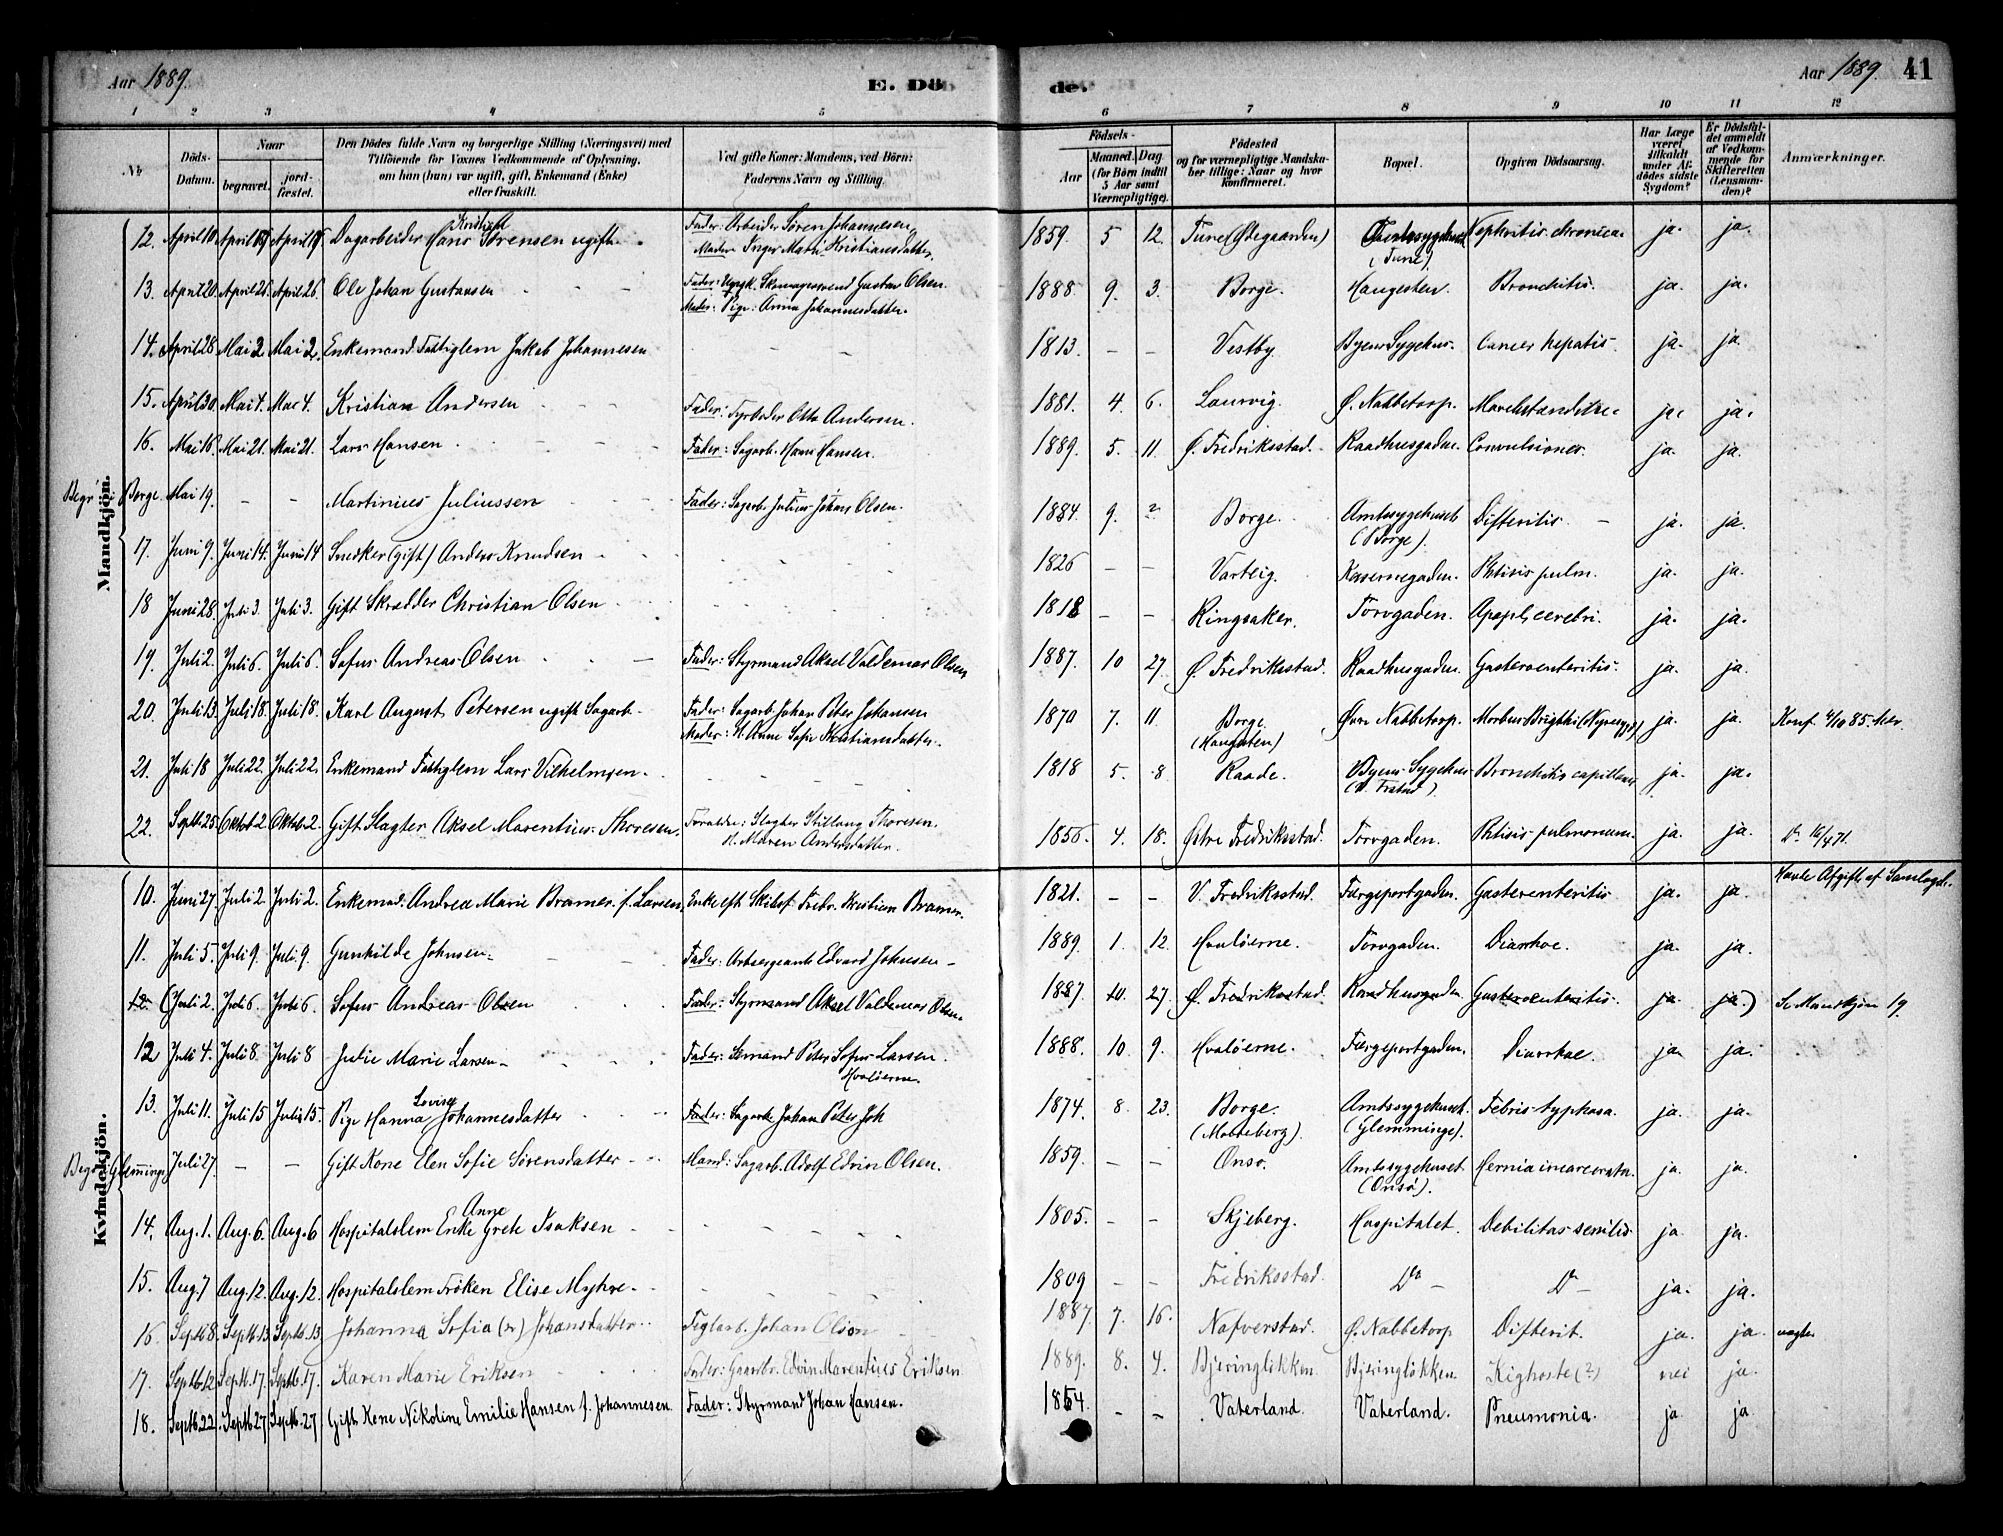 Aar 1889. E. Döde. Aar 1889. 41
1 2 3 4 5 6 7 8 9 10 11 12
№ Döds-Datum. Naar begravet. jord-fæstet. Den Dödes fulde Navn og borgerlige Stilling (Næringsvei) med Tilföiende for Voxnes Vedkommende af Oplysning, om han (hun) var ugift, gift, Enkemand (Enke) eller fraskilt. Ved gifte Koner: Mandens, ved Börn: Faderens Navn og Stilling. Födsels- Aar Maaned. Dag. (for Börn indtil 5 Aar samt Værnepligtige). Födested og for værnepligtige Mandskaber tillige: Naar og hvor konfirmeret. Bopæl. Opgiven Dödsaarsag. Har Læge været tilkaldt under Afdödes sidste Sygdom? Er Dödsfaldet anmeldt af Vedkommende for Skifteretten (Lensmanden)? Anmærkninger.
Mandkjön.
12. April 10. Dagarbeider Hans Kristian Sörensen ugift. Fader: Arbeider Sören Johannesen 1859. 5 12. Tune (Ödegaarden) Nephritis chronica. ja. ja.
Moder Inger Marie Kristiansdatter. (Tune).
13. April 20. April 26. April 26. Ole Johan Gustavsen Fader: Ugk. Skomagersvend Gustav Olsen. 1888 9. 3. Borge. Haugesten. Bronchitis. ja. ja.
Moder: Pige: Anna Johannesdatter.
14. April 28 Mai 2. Mai 2. Enkemand Fattiglem Jakob Johannesen 1813. – – Vestby. Byens Sygehus. Cancer hepatis. ja. ja
15. April 30. Mai 4. Mai 4. Kristian Andersen Fader: Fyrböder Otto Andersen. 1881. 4. 6. Laurvig. Ö. Nabbetorp. ja. ja.
16. Mai 16. Mai 21. Mai 21. Lars Hansen. Fader: Sagarb. Hans Hansen. 1889. 5. 11. Ö. Fredriksstad. Raadhusgaden. Convulsioner. ja. ja.
Begr. i Borge. Mai 19. – – Martinius Juliussen Fader: Sagarb. Julius Johan Olsen. 1884. 9. 2 Borge. Amtssygehuset (Borge). Difteritis – ja. ja.
17. Juni 9. Juni 14. Juni 14 Snedker (gift) Anders Knudsen 1826 – – Varteig. Kasernegaden. Phtisis pulm. ja. ja.
18 Juni 28. Juli 3. Juli 3. Gift Skrædder Christian Olsen 1818 – – Ringsaker. Torvgaden. Apopl. cerebri. ja. ja.
19. Juli 2. Juli 6. Juli 6. Sofus Andreas Olsen Fader: Styrmand Aksel Valdemar Olsen 1887. 10 27. Ö. Fredriksstad. Raadhusgaden. Gasteroenteritis. ja. ja.
20. Juli 13. Juli 18. Juli 18. Karl August Petersen ugift Sagarb. Fader: Sagarb. Johan Peter Johansen 1870 7. 11. Borge (Haugesten) Övre Nabbetorp. Morbus Brightii ja. ja. Konf. 4/10 85. her
Moder: H. Anne Sofie Kristiansdatter.
21. Juli 18 Juli 22. Juli 22. Enkemand Fattiglem Lars Vilhelmsen. 1818 5. 8. Raade. Byens Sygehus (V. Frstad). Bronchitis capillaris ja. ja.
22. Septb. 25. Oktob. 2. Oktob. 2. Gift Slagter Aksel Marentius Thoresen. Forældre: Slagter Stillaug Thoresen. 1856. 4. 18. Östre Fredriksstad. Torvgaden. Phtisis pulmonum. ja. ja. Do 16/4 71.
H. Maren Andersdatter.
Kvindekjön.
10. Juni 27. Juli 2. Juli 2. Enkemad. Andrea Marie Bramer f. Larsen. Enke eft. Skibsf. Fredr. Kristian Bramer. 1821. – – V. Fredriksstad. Færgeportgaden. Gasterenteritis ja. ja. Havde Afgift af Samlaget.
11. Juli 5. Juli 9. Juli 9. Gunhilde Johnsen. Fader: Artsergeant Edvard Johnsen – 1889. 1. 12. Hvalöerne. Torvgaden. Diarrhoe. ja. ja.
12 (Juli 2. Juli 6. Juli 6. Sofus Andreas Olsen Fader: Styrmand Aksel Valdemar Olsen. 1887. 10. 27. Ö. Fredriksstad. Raadhusgaden. Gasteroenteritis. ja. ja.) Se Mandkjön 19.
12 Juli 4. Juli 8. Juli 8 Julie Marie Larsen. Fader: Sömand Peter Sofus Larsen. Hvalöerne. 1888. 10. 9. Hvalöerne. Færgeportgaden. Diarrhoe. ja. ja.
13. Juli 11. Juli 15 Juli 15. Pige Hanna Lovise Johannesdatter Fader: Sagarb. Johan Peter Joh 1874. 8. 23. Borge. (Moteberg). Amtssygehuset. (Glemminge). Febris typhosa. ja. ja.
Begr. i Glemminge Juli 27. – – Gift Kone Elen Sofie Sörensdatter Mand: Sagarb. Adolf Edvin Olsen. 1859. – – Onsö. Amtssygehuset (Onsö). Hernia incarcerata. ja. ja.
14. Aug. 1. Aug. 6. Aug. 6 Hospitalslem Enke Anne Grete Isaksen 1805. – – Skjeberg. Hospitalet. Debilitas senilis. ja. ja.
15. Aug. 7 Aug. 12. Aug. 12. Hospitalslem Fröken Elise Myhre. 1809 – – Fredriksstad. Do – Do – ja. ja.
16. Septb 8. Septb. 13. Septb. 13 Johanna Sofia Johansdatter Teglarb. Johan Olson 1887. 7. 16. Nafverstad. Ö. Nabbetorp Difterit. ja. ja.
17. Septb 12 Septb. 17. Septb. 17. Karen Marie Eriksen Fader: Gaardbr. Edvin Marentius Eriksen 1889. 8. 4. Bjeringlökken. Bjeringlökken. Kighoste (?) nei ja.
18. Septb. 22. Septb 27. Septb 27 Gift Kone Nikoline Emilie Hansen f. Johannesen. Fader: Styrmand Johan Hansen. 1864. – – Vaterland. Vaterland. Pneumonia. ja ja